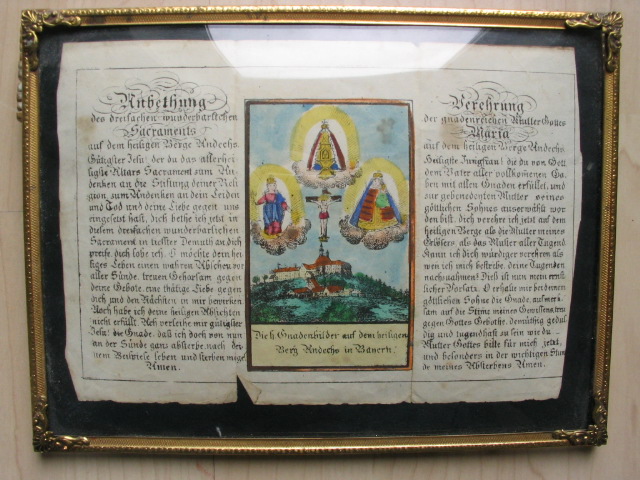 Anbethung
des dreifachen wunderbarlichen
Sacraments
auf dem heiligen Berge Andechs.
Gütigster Jesu! der du das allerhei-
ligste Altars Sacrament zum An-
denken an die Stiftung deiner Reli-
gion, zum Andenken an dein Leiden
und Tod und deine Liebe gegen uns
eingesetzt hast, dich bethe ich jetzt in
diesem dreifachen wunderbarlichen
Sacrament in tiefster Demuth an, dich
preise, dich lobe ich. O möchte dein hei-
liges Leben einen wahren Abscheu vor
aller Sünde, treuen Gehorsam gegen
deine Gebote, eine thätige Liebe gegen
dich und den Nächsten in mir bewirken.
Noch habe ich deine heiligen Absichten
nicht erfüllt. Ach verleihe mir gütigster
Jesu! die Gnade, daß ich doch von nun
an der Sünde ganz absterbe, nach dei-
nem Beispiele leben und sterben möge.
Amen.
Die h. Gnadenbilder auf dem heiligen
Berg Andechs in Bayern.
Verehrung
der gnadenreichen Mutter Gottes
Maria
auf dem heiligen Berge Andechs.
Heiligste Jungfrau! die du von Gott
dem Vater aller vollkomenen Ga-
ben mit allen Gnaden erfüllet, und
zur gebenedeyten Mutter seines
göttlichen Sohnes auserwählt wor-
den bist. dich verehre ich jetzt auf dem
heiligen Berge als die Mutter meines
Erlösers, als das Muster aller Tugend.
Kann ich dich würdiger verehren als
wen ich mich bestrebe, deine Tugenden
nachzuahmen? Dieß ist nun mein ernst-
licher Vorsatz. O erhalte mir bei deinem
göttlichen Sohne die Gnade, aufmerk-
sam auf die Stime meines Gewissens, treu
gegen Gottes Gebothe, demüthig, gedul-
dig und tugendhaft zu sein wie du.
Mutter Gottes bitte für mich jetzt,
und besonders in der wichtigen Stun-
de meines Absterbens Amen.